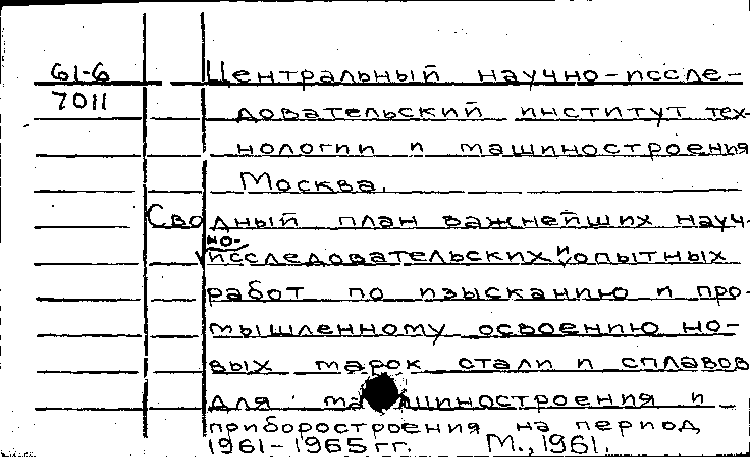 61-6 Центральный научно-иссле-
7011 довательский институт тех-
нологии и машиностроения
Москва.
Сводный план важнейших науч-
но-
исследовательских и опытных
работ по изысканию и про-
мышленному освоению но-
вых марок стали и сплавов
для машиностроения и
приборостроения на период
1961-1965 гг. М., 1961.